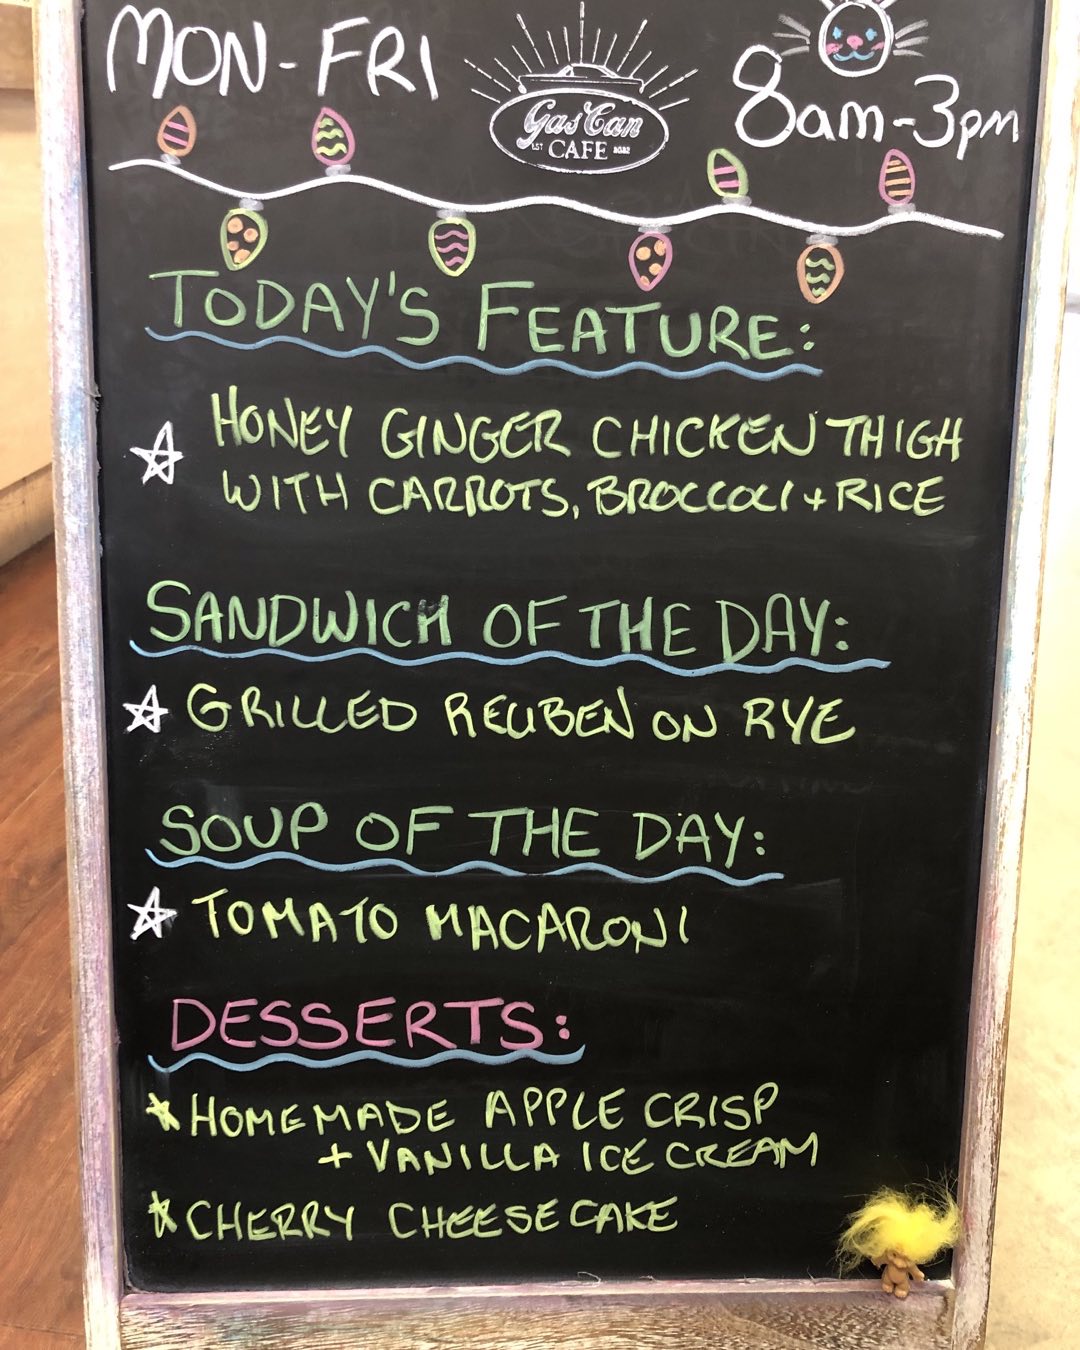 MON-FRI
Gas Can
CAFE
8am-3pm
TODAY'S FEATURE:
HONEY GINGER CHICKEN THIGH
WITH CARROTS, BROCCOLI + RICE
SANDWICH OF THE DAY:
GRILLED REUBEN ON RYE
SOUP OF THE DAY:
TOMATO MACARONI
DESSERTS:
HOMEMADE APPLE CRISP
+ VANILLA ICE CREAM
CHERRY CHEESECAKE